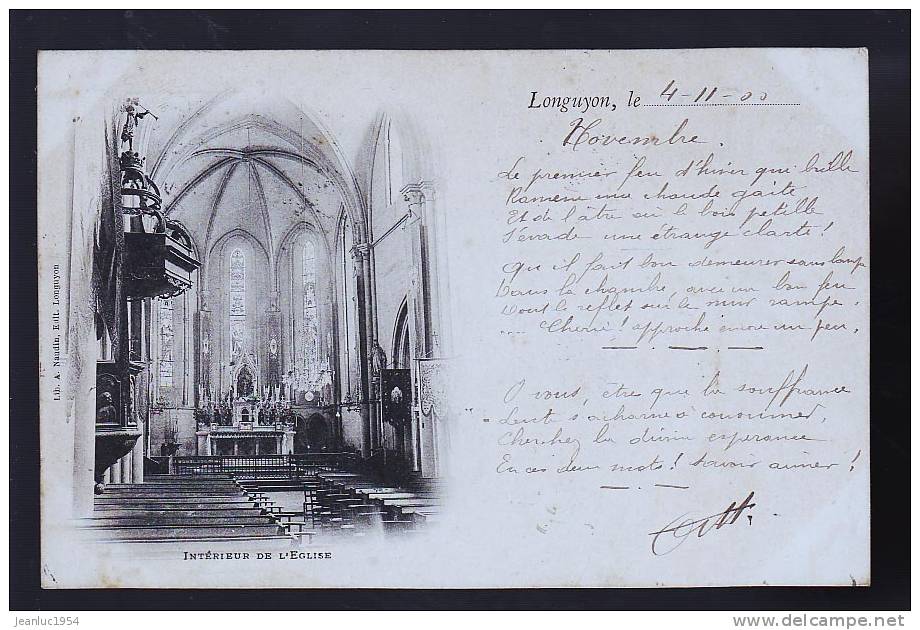 Longuyon, le 4-11-00
Novembre.
Le premier feu d'hiver qui brille
Ramène une chaude gaité
Et de l'âtre où le bois petille
S'évade une étrange clarté!
Qu'il fait bon demeurer sans lampe
Dans la chambre, avec un bon feu
Dont le reflet sur le mur rampe.
.... Cherie! approche encore un peu.
O vous, être que la souffrance
Lente s'acharne à consumer,
Cherchez la divine espérance
En ces deux mots! savoir aimer!
Lib. A. Naudin, Edit. Longuyon
INTÉRIEUR DE L'EGLISE
jeanluc1954
www.delcampe.net